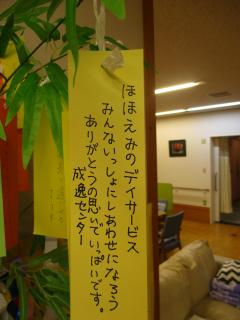 ほほえみのデイサービス
みんないっしょにしあわせになろう
ありがとうの思いでいっぱいです。
成逸センター